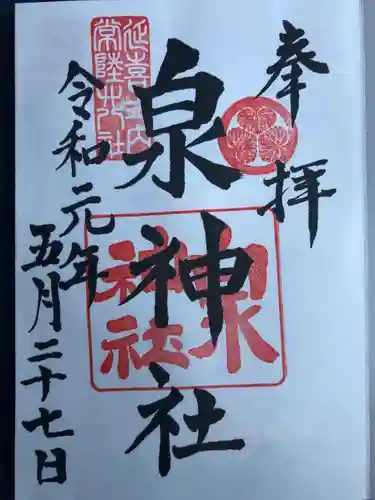 奉拝
泉神社
延喜式内
常陸廿八社
泉神社
令和元年
五月二十七日